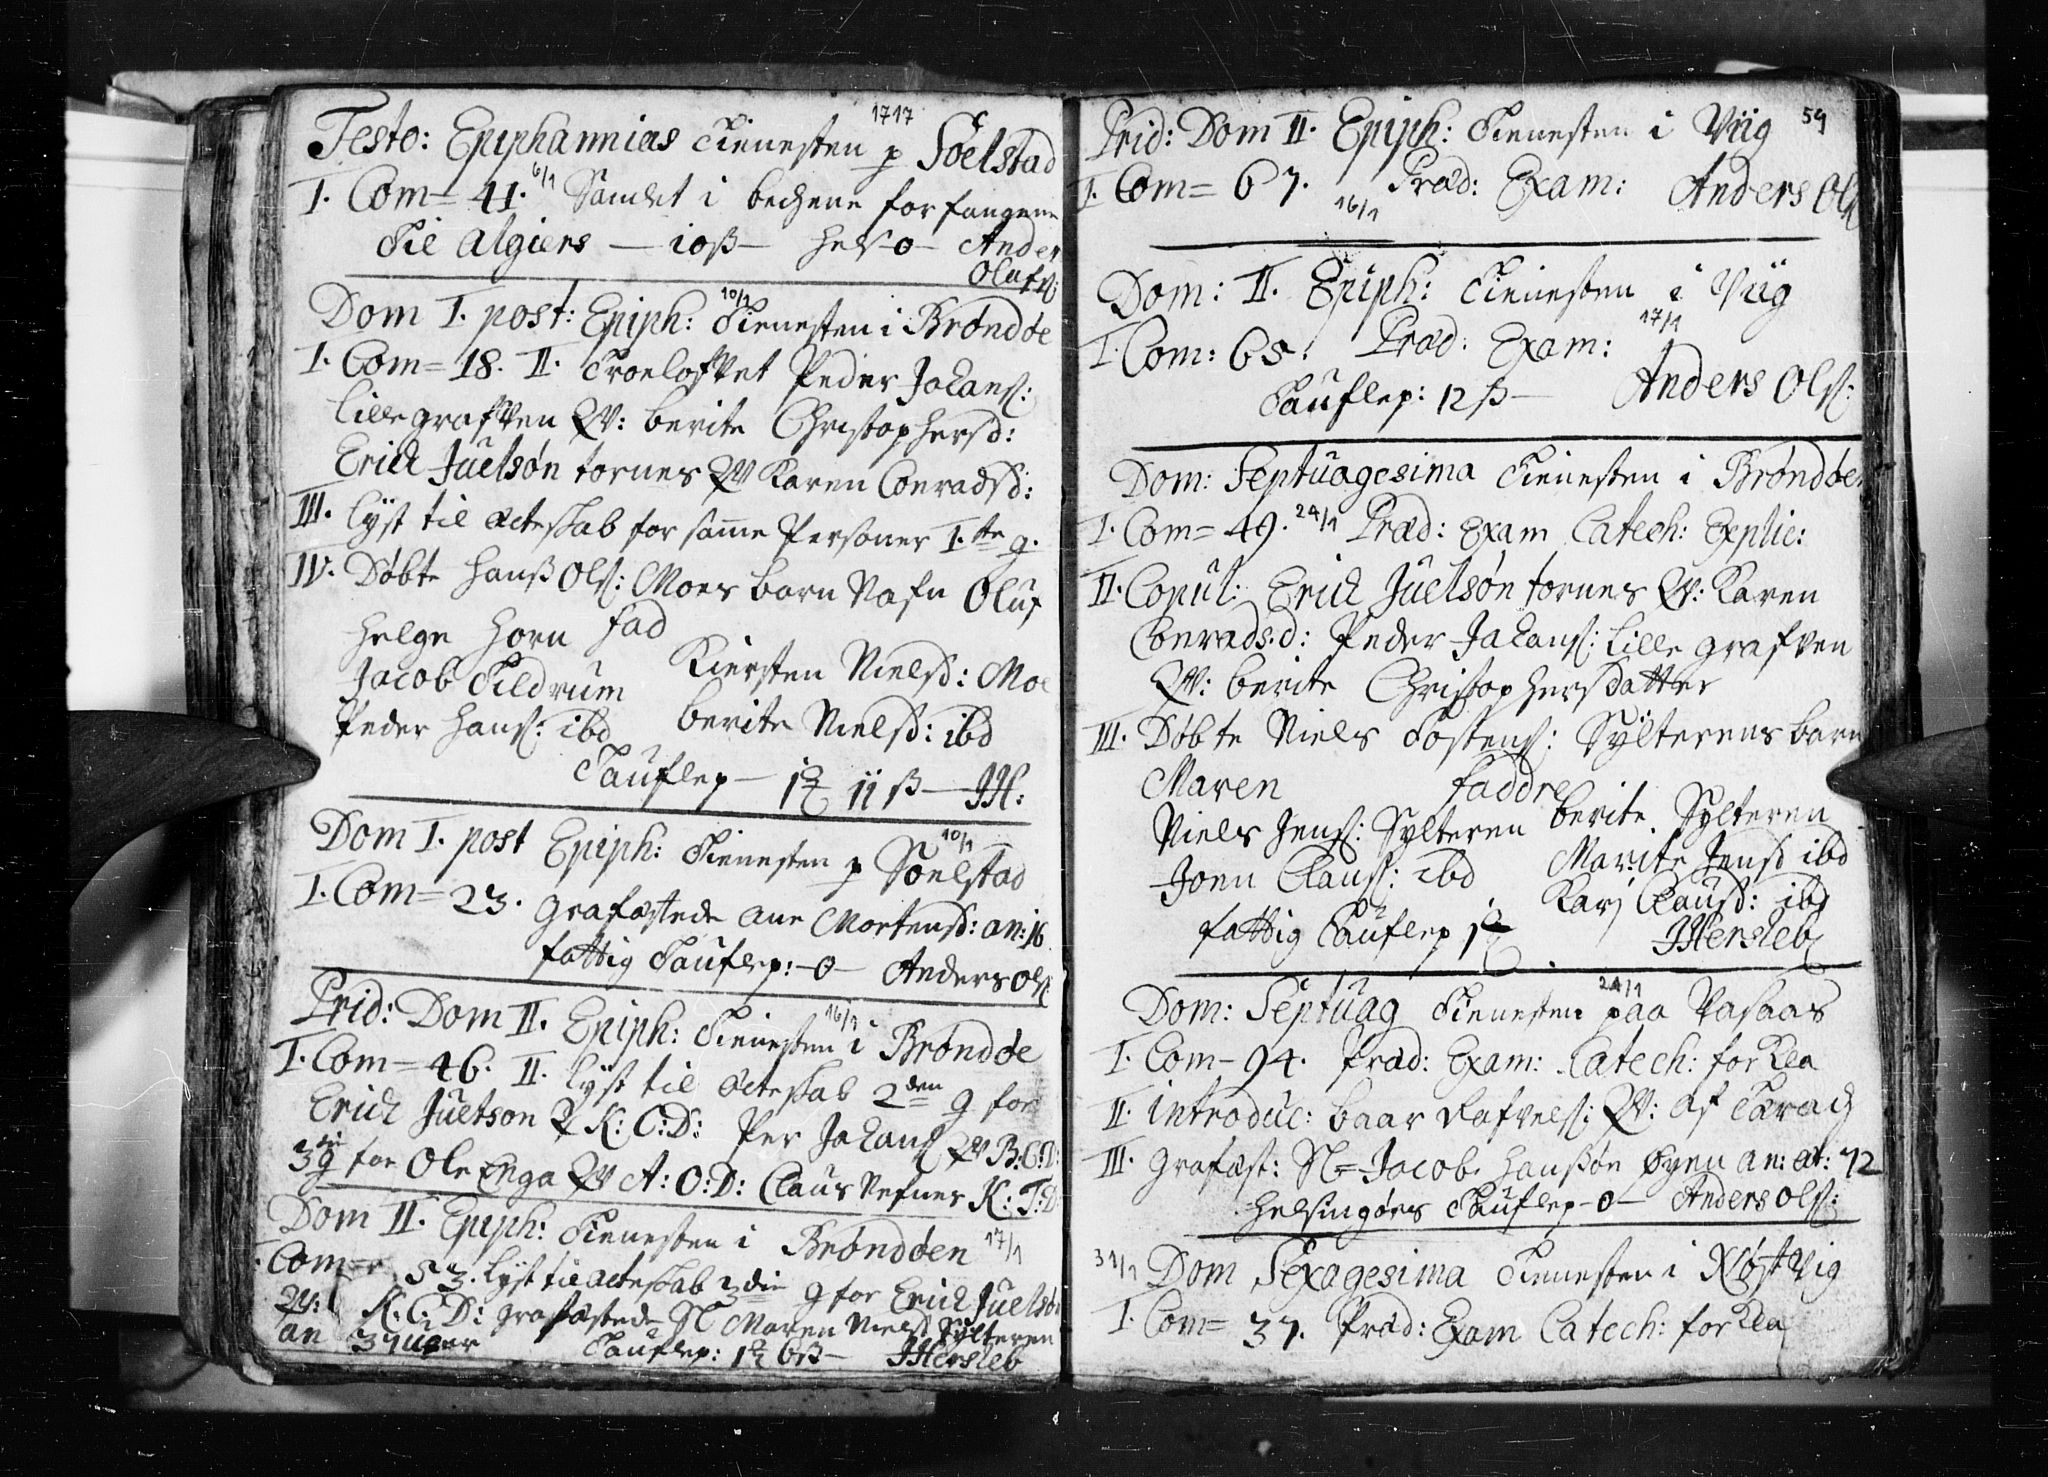 1717
Festo: Epiphannias Tienesten p Söelstad
I. Com = 41. 6/1 Samlet i bechene for fangene
til Algiers — 10 ß — hels 0 — Anders
Olufs:
Dom I. post: Epiph: 10/1 Tienesten i Brøndøe
I. Com = 18. II. Troelofvet Peder Johans:
Lille grafven Qv: berite Christophersd:
Erich Juelsøn tornes Qv Karen Conradsd:
III. lyst til ecteskab for samme Personer 1.te g.
IV. Døbte Hanß Ols: Moes barn Nafn Oluf
Helge Horn fad
Jacob Tildrum Kiersten Nielsd: Moe
Peder Hans: ibd berite Nielsd: ibd
Tauflep — 1 11 ß — JH:
Dom I. post Epiph: Tienesten p Söelstad 10/1
I. Com = 23. grafæstede Ane Mortensd: an: 16
fattig Tauflep: — 0 — Anders Ols:
Prid: Dom II. Epiph: Tienesten i Brøndøe 16/1
I. Com = 46. II. lyst til Ecteskab 2den g for
Erich Juelson & K: C: D: Per Johans Qv B: C: D:
3die g for Ole Enga Qv A: O: D: Claus Vefner K: T: D
Dom II. Epiph: Tienesten i Brøndøen 17/1
Com = 53. lyst til ecteskab 3die g for Erich Juelsøn
Qv: K: C: D: grafæstede Sl Maren Nielsd Sylteren
an 37 uger Tauflep: 1 6 ß — JHersleb
59
Prid: Dom II. Epiph: Tienesten i Viig
I. Com = 67. 16/1 Præd: Exam: Anders Ols
Dom: II. Epiph: Tienesten i Viig
I. Com: 65. Præd: Exam: 17/1
Tauflep: 12 ß — Anders Ols:
Dom: Septuagesima Tienesten i Brøndøen
I. Com = 49. 24/1 Præd: Exam Catech: Explic:
II. Copul: Erich Juelsøn tornes Qv: Karen
Conrads:d: Peder Johans: Lille grafven
Qv: berite Christophersdatter
III. Døbte Niels Tostens: Sylterens barn
Maren faddre
Niels Jens: Sylteren berite Sylteren
Joen Claus: ibd Marite Jensd ibd
Karj Clausd: ibd
fattig Tauflep 1 JHersleb
Dom: Septuag Tienesten paa Vasaas 24/1
I. Com — 94. Præd: Exam: Catech: forkla
II. introduc: baar Rafvels: Qv: af
III. grafæst: Sl = Jacob Hansøn Øyen an: æt: 72
Helsingørs Tauflep — 0 — Anders Ols:
31/1 Dom Sexagesima Tienesten i Nøstvig
I. Com = 37. Præd: Exam Catech: forkla